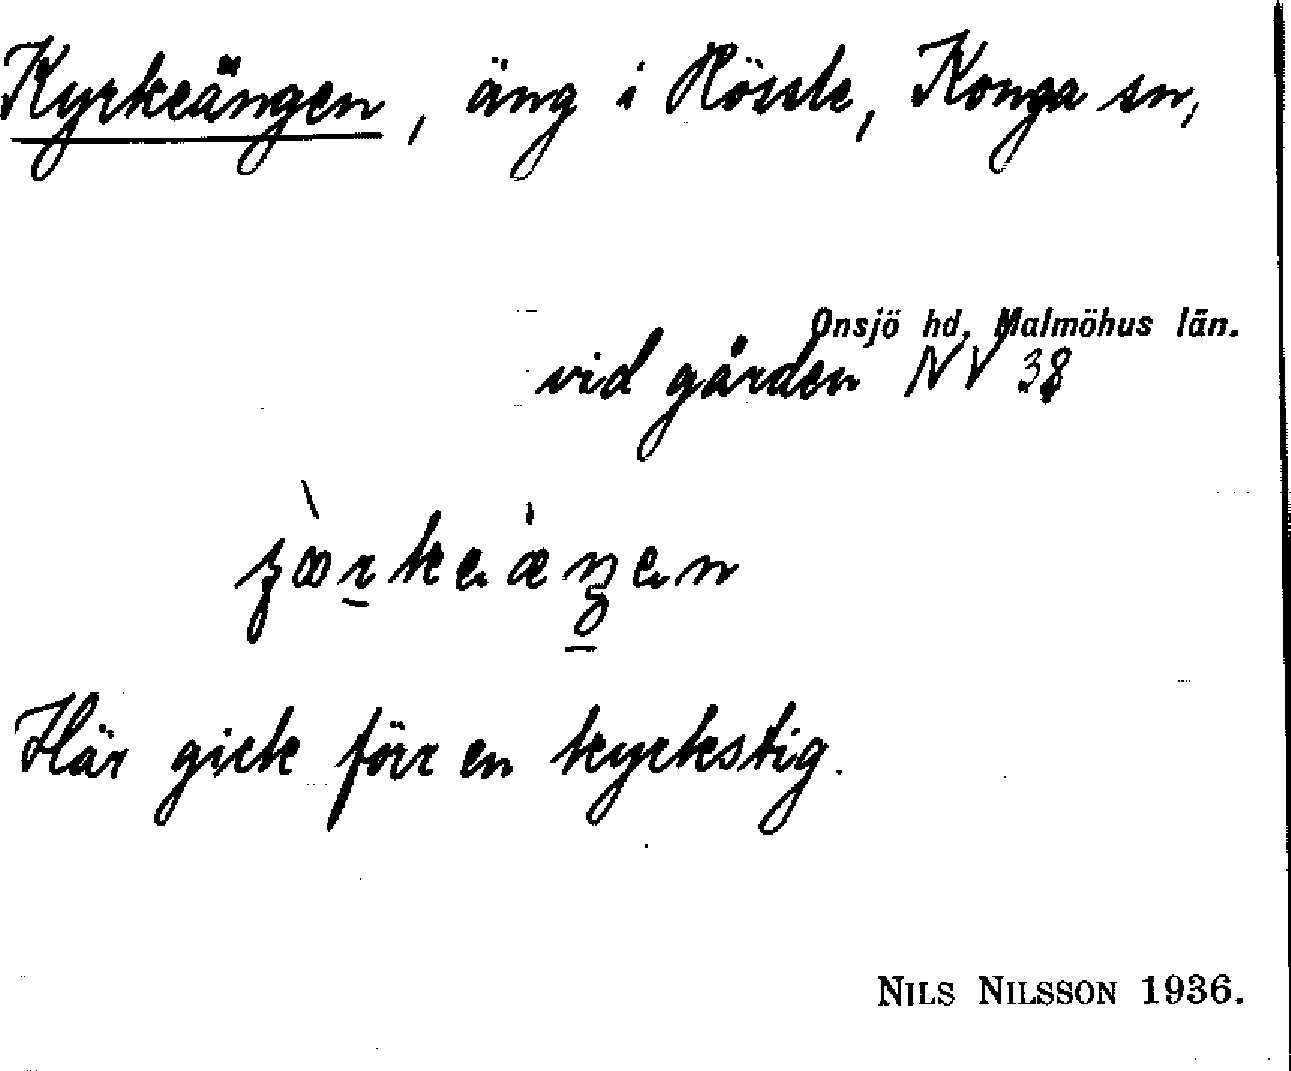 Kyrkeängen, äng i Rössle, Konga sn,
Onsjö hd, Malmöhus län.
vid gården NV 38
Här gick förr en kyrkstig.
NILS NILSSON 1936.